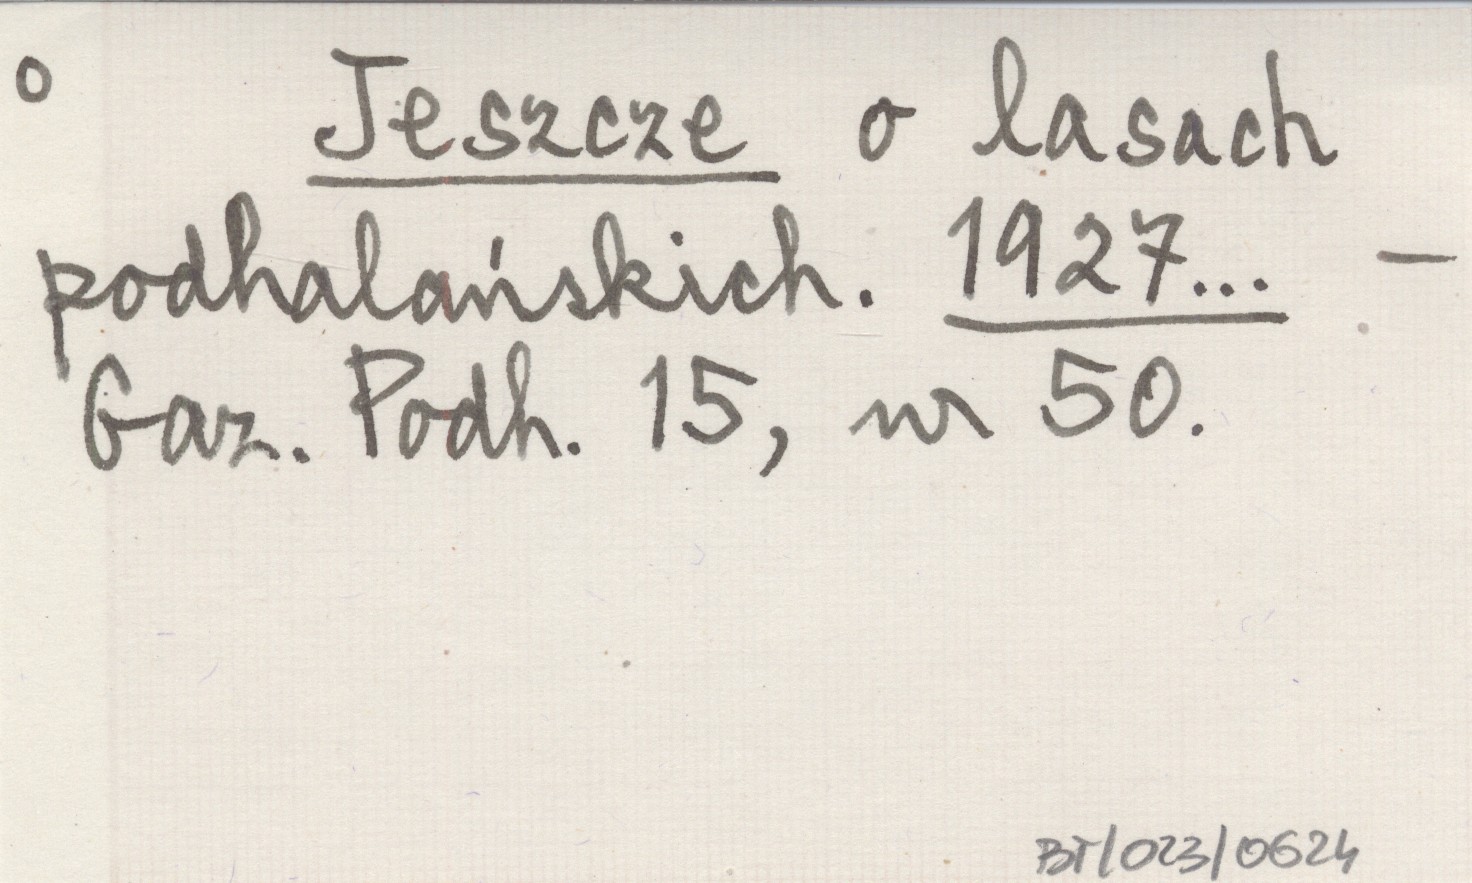 o Jeszcze o lasach
podhalańskich. 1927... —
Gaz. Podh. 15, nr 50.
BT/023/0624